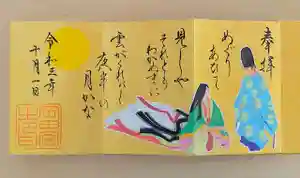 奉拝
めぐりあひて
見しや
それともわかぬまに
雲がくれにし
夜半の
月かな
令和三年
十月一日